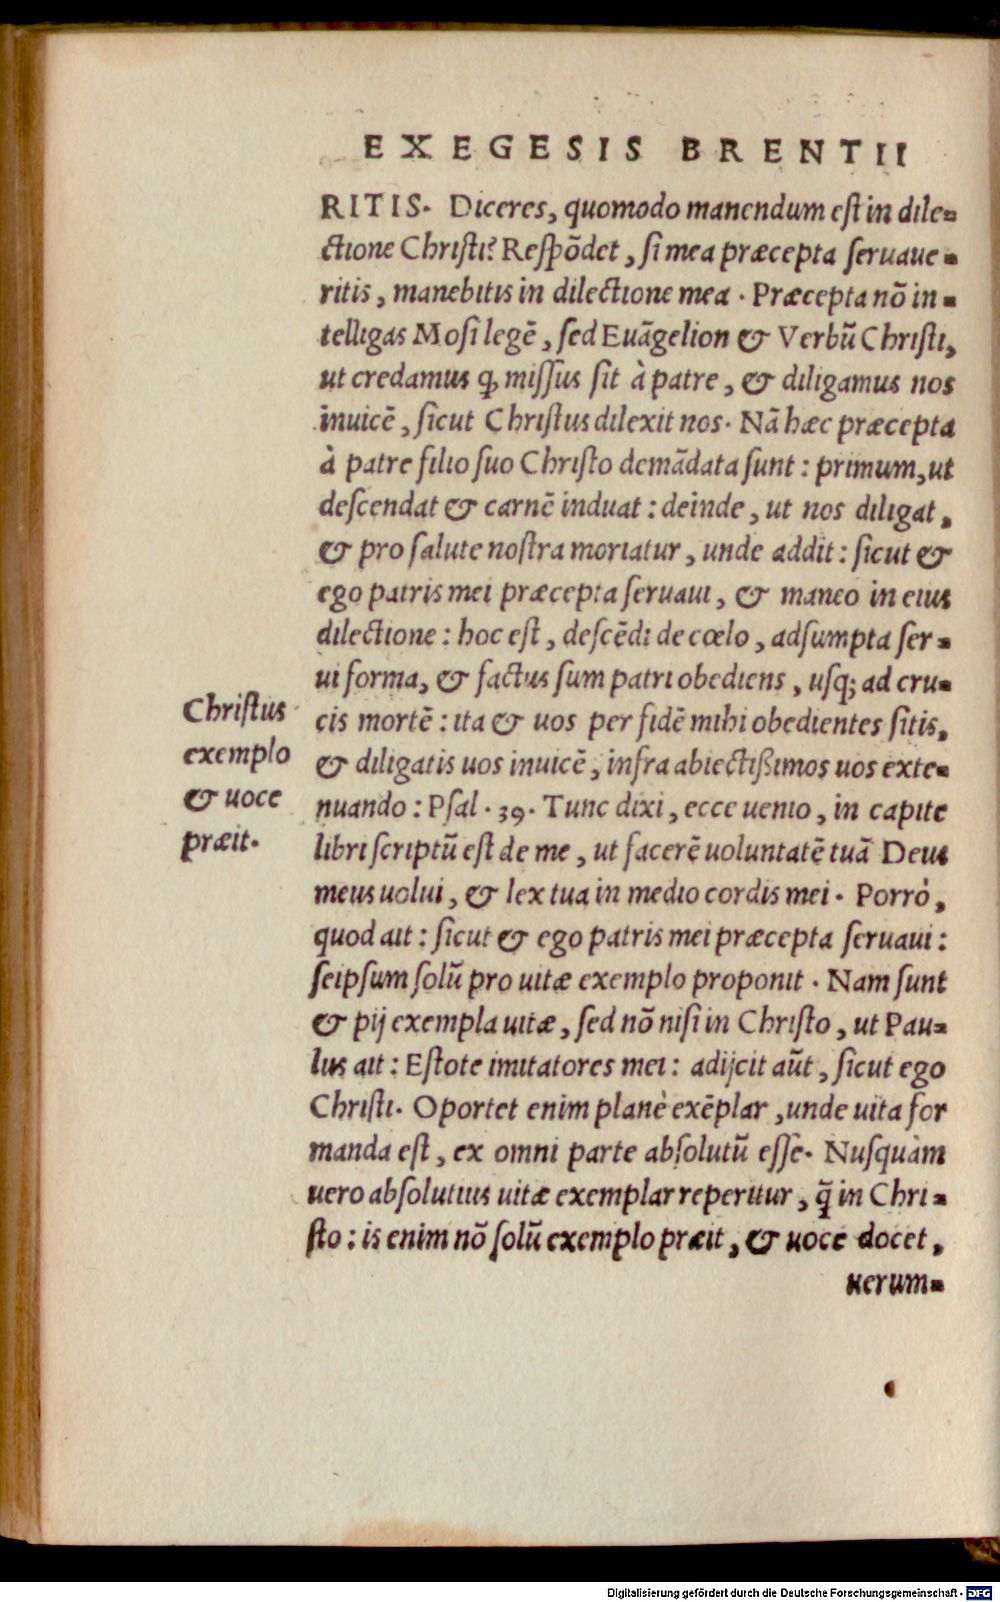 EXEGESIS BRENTII
RITIS. Diceres, quomodo manendum est in dile-
ctione Christi? Respõdet, si mea præcepta seruaue-
ritis, manebitis in dilectione mea. Præcepta nõ in-
telligas Mosi legẽ, sed Euãgelion & Verbũ Christi,
ut credamus ꝙ missus sit à patre, & diligamus nos
inuicẽ, sicut Christus dilexit nos. Nã hæc præcepta
à patre filio suo Christo demãdata sunt: primum, ut
descendat & carnẽ induat: deinde, ut nos diligat,
& pro salute nostra moriatur, unde addit: sicut &
ego patris mei præcepta seruaui, & maneo in eius
dilectione: hoc est, descẽdi de cœlo, adsumpta ser-
ui forma, & factus sum patri obediens, usq; ad cru-
cis mortẽ: ita & uos per fidẽ mihi obedientes sitis,
& diligatis uos inuicẽ, infra abiectißimos uos exte-
nuando: Psal. 39. Tunc dixi, ecce uenio, in capite
libri scriptũ est de me, ut facerẽ uoluntatẽ tuã Deus
meus uolui, & lex tua in medio cordis mei. Porrò,
quod ait: sicut & ego patris mei præcepta seruaui:
seipsum solũ pro uitæ exemplo proponit. Nam sunt
& pij exempla uitæ, sed nõ nisi in Christo, ut Pau-
lus ait: Estote imitatores mei: adijcit aũt, sicut ego
Christi. Oportet enim planè exẽplar, unde uita for
manda est, ex omni parte absolutũ esse. Nusquàm
uero absolutius uitæ exemplar reperitur, q̃ in Chri-
sto: is enim nõ solũ exemplo præit, & uoce docet,
uerum-
Christus
exemplo
& uoce
præit.
Digitalisierung gefördert durch die Deutsche Forschungsgemeinschaft - DFG